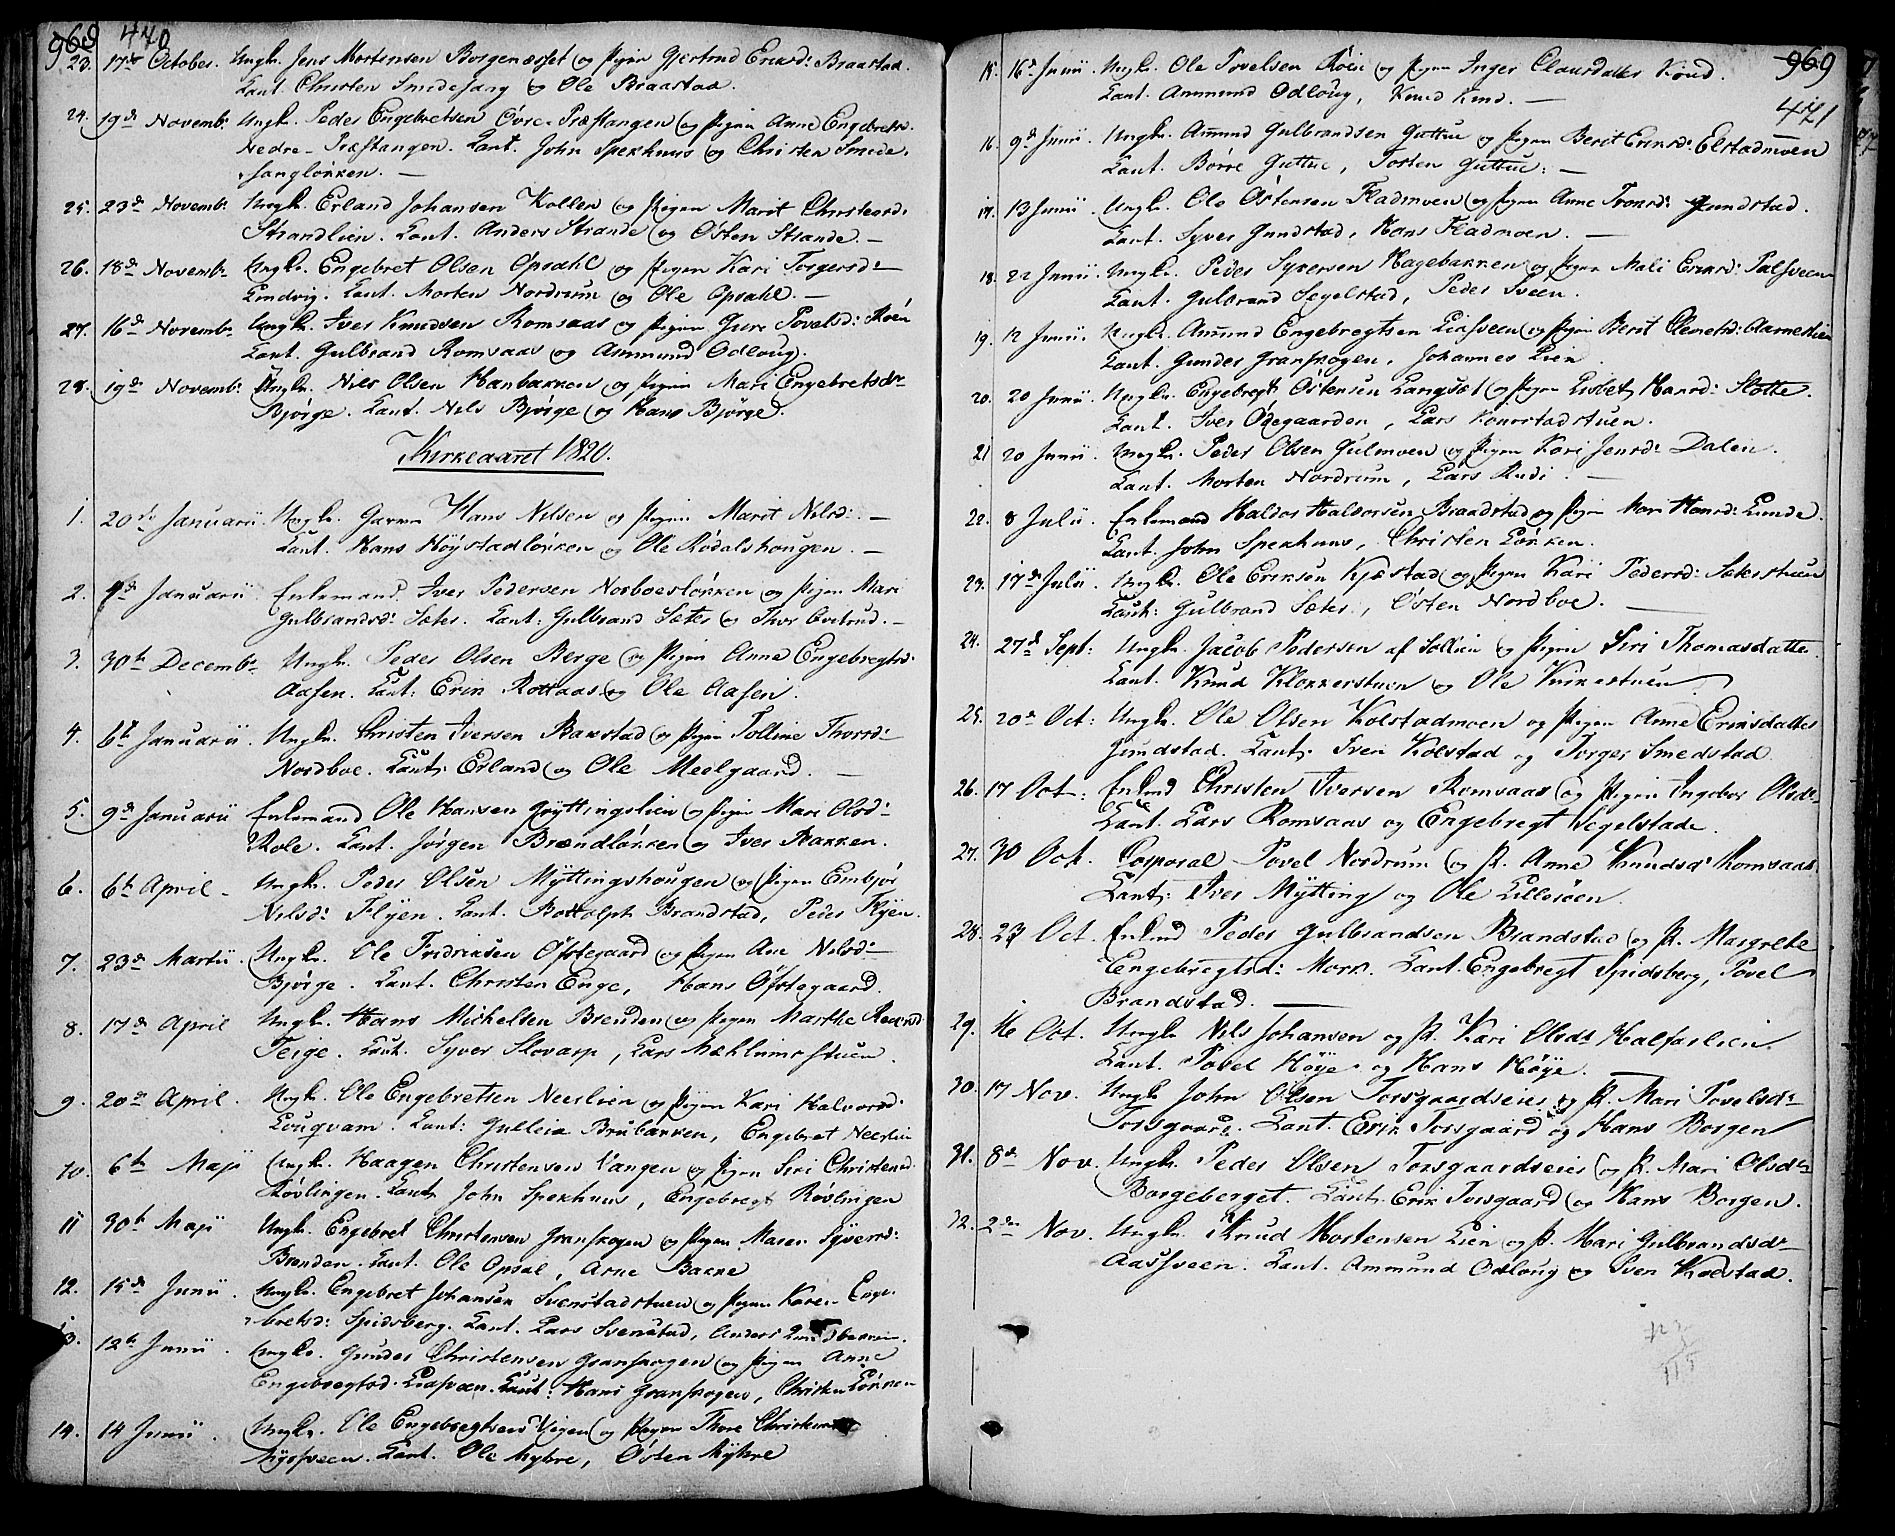 969 470
23. 17de October. Ungk. Jens Mortensen Borgenæsset og Pigen Gjertrud Eriksd: Braastad.
Caut. Christen Smedesang og Ole Braastad.
24. 19de Novembr Ungk. Peder Engebretsen Övre-Præstangen og Pigen Anne Engebretsd.
Nedre-Præstangen. Caut. John Spekhuus og Christen Smede-
sangløkken. —
25. 23de Novembr Ungk. Erland Johansen Kollen og Pigen Marit Christensd:
Strandlien. Caut. Anders Strande og Östen Strande. —
26. 18de Novembr Ungk. Engebret Olsen Opsahl og Pigen Kari Torgersd:
Lindvig. Caut. Morten Nordrum og Ole Opsahl. —
27. 16de Novembr Ungk. Iver Knudsen Romsaas og Pigen Guri Povelsd: Röen
Caut. Gulbrand Romsaas og Ammund Odloug.
28. 19de Novembr Ungk. Nils Olsen Hanbakken og Pigen Mari Engebretsdr
Bjørge. Caut. Nils Bjørge og Hans Bjørge.
Kirkeaaret 1820.
1. 20de Januarii. Ungk. Hans Nilsen og Pigen Marit Nilsd: —
Caut. Hans Höystadløkken og Ole Rödalshougen. —
2. Januarii Enkemand Iver Pedersen Norboeløkken og Pigen Mari
Gulbrandsd: Sæter. Caut: Gulbrand Sæter og Thor —
3. 30te Decembr Ungk. Peder Olsen Berge og Pigen Anne Engebregtsd:
Aasen. Caut: Erik Rottaas og Ole Aasen.
4. 6te Januarii. Ungk. Christen Iversen Bakstad og Pigen Tolline Thorsd:
Nordboe. Caut: Erland og Ole Meelgaard. —
5. 9de Januarii Enkemand Ole Hansen Grÿttingslien og Pigen Mari Olsd:
Role. Caut. Jörgen Brændløkken og Iver Bakken.
6. 6te April - Ungk. Peder Olsen Mÿttingshougen og Pigen Embjör
Nilsd: Flÿen. Caut. Bottolph Brandstad, Peder Flÿen.
7. 23de Martii. Ungk. Ole Fredriksen Öfstegaard og Pigen Ane Nilsd:
Bjørge. Caut. Christen Enge, Hans Öfstegaard.
8. 17de April Ungk. Hans Mickelsen Brenden og Pigen Marthe
Teige. Caut. Syver Slovarp, Lars Mæhlumsstuen.
9. 20de April. Ungk. Ole Engebretsen Neerlien og Pigen Kari Halvorsd:
Louqvam. Caut: Gulleik Brubakken, Engebret Neerlien
10. 6te Maji Ungk. Haagen Christensen Vangen og Pigen Siri Christensd.
Røvlingen. Caut. John Spekhuus, Engebregt Røvlingen
11 30te Maji Ungk. Engebret Christensen Granskogen og Pigen Maren Syversd:
Brenden. Caut. Ole Opsal, Arne Bakke
12. 15de Junii. Ungk. Engebret Johansen Svenstadstuen og Pigen Karen Enge-
bretsd: Spidsberg. Caut. Lars Svenstad, Anders
13. 12te Junii. Ungk. Gunder Christensen Granskogen og Pigen Anne
Engebregtsd. Liasveen. Caut: Hans Granskogen, Christen Løkken
14. 14 Junii. Ungk. Ole Engebregtsen Vigen og Pigen Thore
Caut. Ole Mykre, Östen Mykre
969
471
15. 16de Junii. Ungk. Ole Povelsen Röen og Pigen Inger Clausdatter Kind.
Caut. Ammund Odloug, Knud Kind. —
16. 9de Junii. Ungk. Amund Gulbrandsen Guttue og Pigen Berit Eriksd: Elstadmoen
Caut. Börre Guttue, Torsten Guttue: —
17. 13 Junii. Ungk. Ole Östensen Fladmoen og Pigen Anne Ivarsd: Gundstad.
Caut. Syver Gundstad, Hans Fladmoen. —
18. 22 Junii. Ungk. Peder Syversen Hagebakken og Pigen Mali Eriksd: Palsveen
Caut. Gulbrand Segelstad, Peder Sveen.
19. 12 Junii. Ungk. Amund Engebregtsen Liasveen og Pigen Berit Clemetsd: Aarneslien
Caut. Gunder Granskogen, Johannes Lien.
20. 20 Junii. Ungk. Engebregt Östensen Langsæt og Pigen Lisbet Hansd: Slotte.
Caut. Iver Ödegaarden, Lars Konrstadstuen.
21 20 Junii. Ungk. Peder Olsen Gulmoen og Pigen Kari Jensd: Dalen.
Caut. Morten Nordrum, Lars Rudi. —
22. 8 Julii. Enkemand Haldor Haldorsen Brandstad og Pigen Mari Hansd: Lunde.
Caut. John Spekhuus, Christen Løkken.
23. 17de Julii. Ungk. Ole Eriksen Kjæstad og Pigen Kari Pedersd: Sæterstuen
Caut: Gulbrand Sæter, Östen Nordboe. —
24. 27de Sept: Ungk. Jacob Pedersen af Sollien og Pigen Siri Thomasdatter.
Caut. Knud Klokkerstuen og Ole Kirkestuen
25. 20de Oct: Ungk. Ole Olsen Kolstadmoen og Pigen Anne Eriksdatter
Gundstad. Caut. Sven Kolstad og Torger Smedstad.
26. 17 Oct: Enkmd Christen Iversen Romsaas og Pigen Ingebor Olsdr
Caut. Lars Romsaas og Engebregt Segelstad.
27. 30 Oct. Corporal Povel Nordrum og P. Anne Knudsdr Romsaas
Caut: Iver Mÿtting og Ole Lillesöen.
28. 23 Oct. Enkmd Peder Gulbrandsen Brandstad og P. Margrete
Engebregtsd: Mork. Caut. Engebregt Spidsberg, Povel
Brandstad. —
29. 16 Oct. Ungk Nils Johansen og P. Kari Olsdr Halfarlien.
Caut. Povel Höÿe og Hans Höÿe.
30. 17 Nov. Ungk John Olsen Torsgaardseies og P. Mari Povelsdr
Torsgaard. Caut. Erik Torsgaard og Hans Borgen
31. 8de Nov. Ungk. Peder Olsen Torsgaardseies og P. Mari Olsdr
Borgeberget. Caut. Erik Torsgaard og Hans Borgen.
32. 2den Nov. Ungk. Knud Mortensen Lien og P. Mari Gulbrandsdr
Aassveen. Caut. Ammund Odloug og Sven Kolstad.